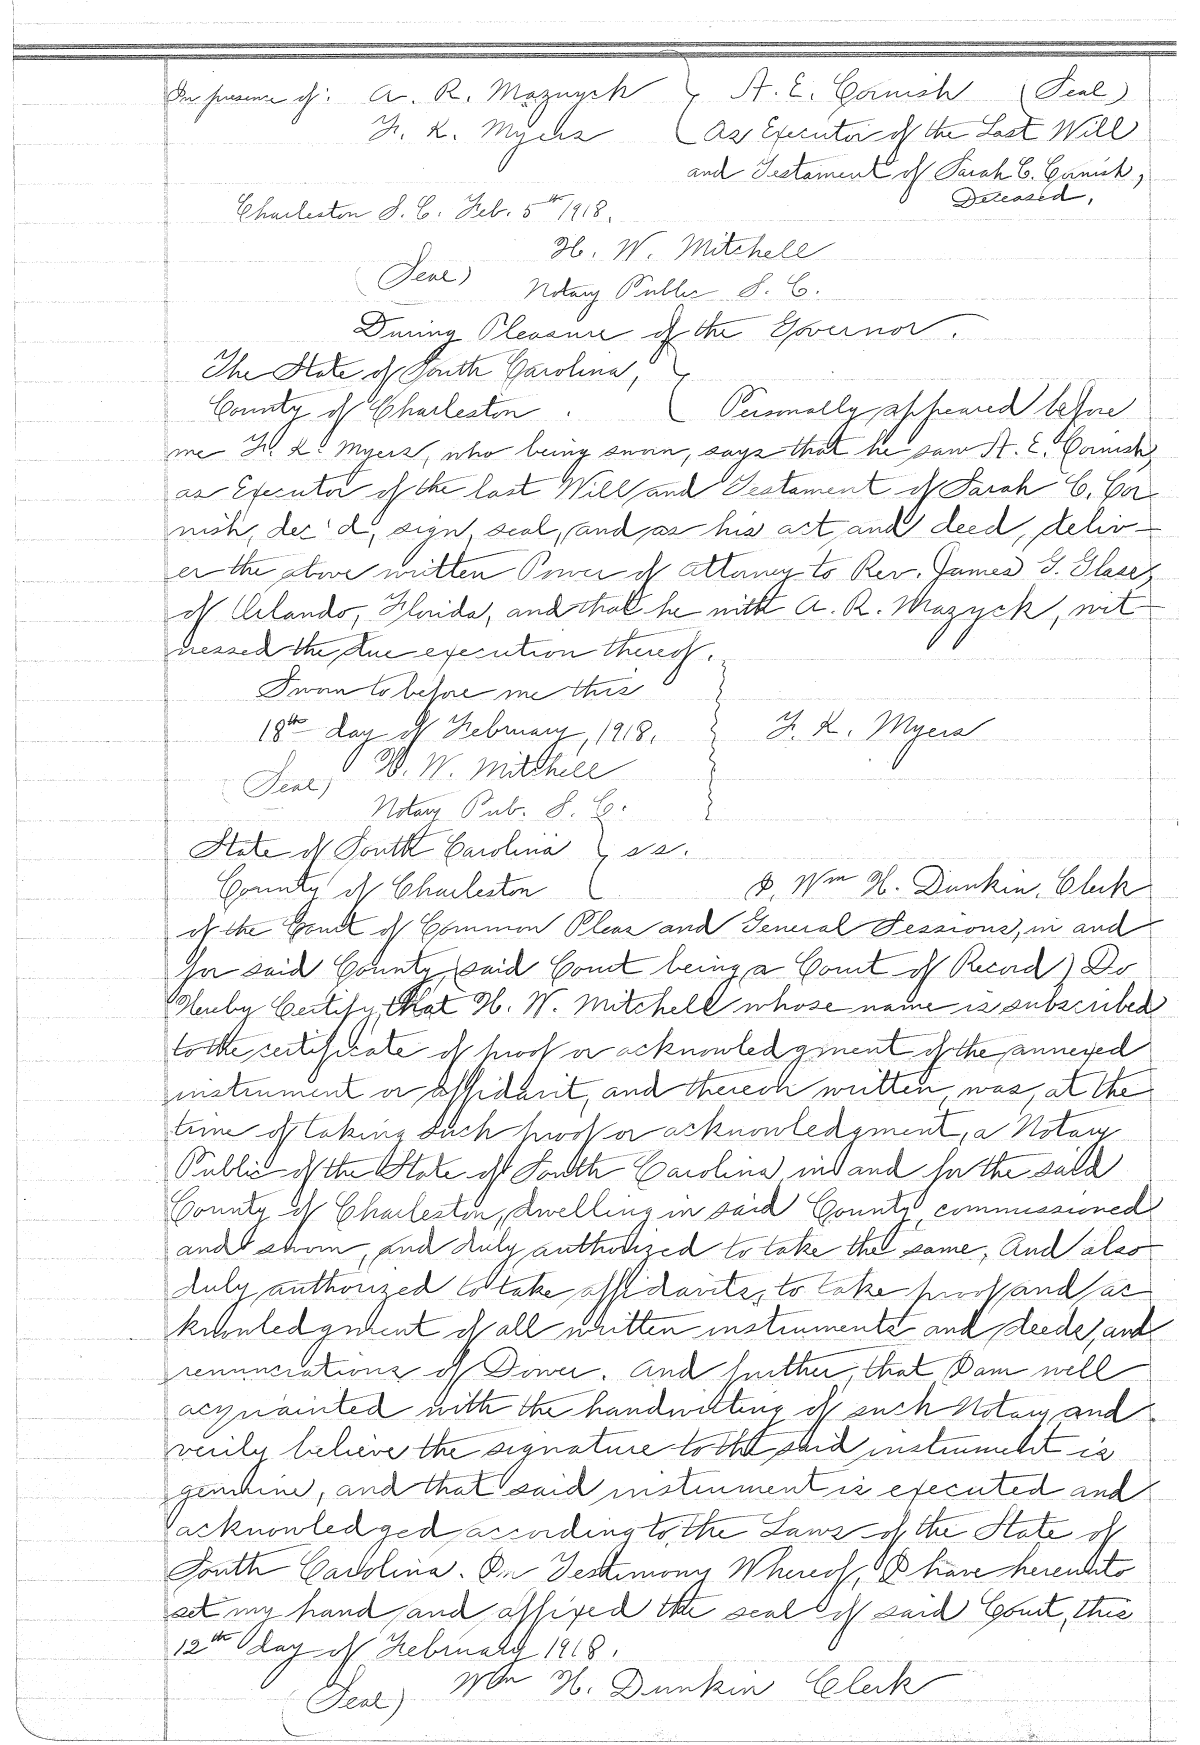 In presence of: A. R. Mazyck } A. E. Cornish (Seal)
F. K. Myers As Executor of the Last Will
and Testament of Sarah C. Cornish,
Deceased,
Charleston S. C. Feb. 5th 1918.
H. W. Mitchell
(Seal) Notary Public S. C.
During Pleasure of the Governor.
The State of South Carolina, }
County of Charleston. Personally appeared before
me F. K. Myers, who being sworn, says that he saw A. E. Cornish,
as Executor of the last Will and Testament of Sarah C. Cor
nish, dec'd, sign, seal, and as his act and deed, deliv-
er the above written Power of attorney to Rev. James G. Glass,
of Orlando, Florida, and that he with A. R. Mazyck, wit-
nessed the due execution thereof.
Sworn to before me this
18th day of February, 1918. } F. K. Myers
(Seal) H. W. Mitchell
Notary Pub. S. C.
State of South Carolina } ss.
County of Charleston I, Wm H. Dunkin, Clerk
of the Court of Common Pleas and General Sessions, in and
for said County, (said Court being a Court of Record) Do
Hereby Certify, that H. W. Mitchell whose name is subscribed
to the certificate of proof or acknowledgment of the annexed
instrument or affidavit, and thereon written, was, at the
time of taking such proof or acknowledgment, a Notary
Public of the State of South Carolina, in and for the said
County of Charleston, dwelling in said County, commissioned
and sworn, and duly authorized to take the same, And also
duly authorized to take affidavits, to take proof and ac
knowledgment of all written instruments and deeds, and
renunciations of Dower. And further, that I am well
acquainted with the handwriting of such Notary and
verily believe the signature to the said instrument is
genuine, and that said instrument is executed and
acknowledged according to the Laws of the State of
South Carolina. In Testimony Whereof, I have hereunto
set my hand and affixed the seal of said Court, this
12th day of February 1918.
(Seal) Wm H. Dunkin Clerk